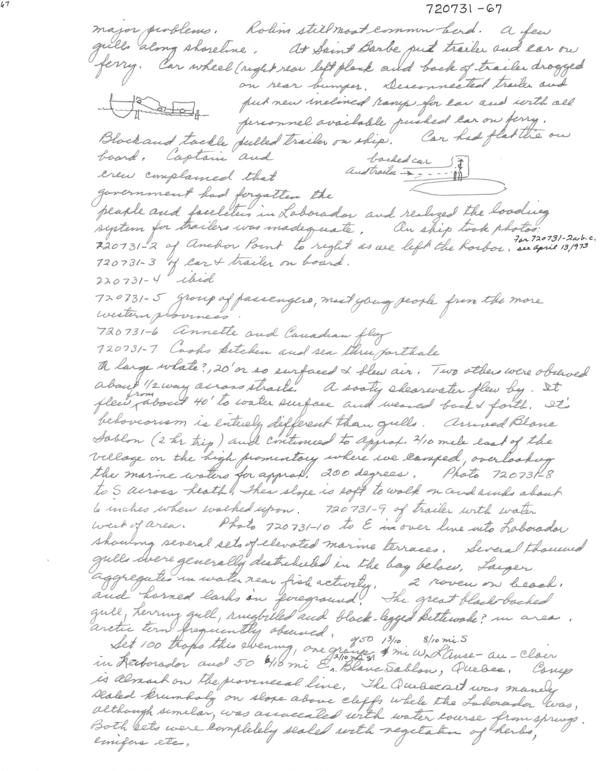 67
720731-67
major problems. Robin still most common bird. A few
gulls along shoreline. At Saint Barbe put trailer and car on
ferry. Car wheel (right rear left plank and back of trailer dragged
on rear bumper. Disconnected trailer and
put new inclined ramp for car and with all
personnel available pushed car on ferry.
Block and tackle pulled trailer on ship. Car had flat tire on
board. Captain and
backed car
and trailer
crew complained that
government had forgotten the
people and facilities in Laborador and realized the loading
system for trailers was inadequate. On ship took photos:
720731-2 of Anchor Point to right as we left the harbor. For 720731-2a.b.c.
see April 13, 1973
720731-3 of car & trailer on board.
720731-4 ibid
720731-5 group of passengers, most young people from the more
western provinces.
720731-6 Annette and Canadian flag
720731-7 Cooks kitchen and sea thru porthole
A large whale?, 20' or so surfaced & blew air. Two others were observed
about 1/2 way across straits. A sooty shearwater flew by. It
flew from about 40' to water surface and weaved back & forth. It's
behaviorism is entirely different than gulls. Arrived Blanc
Sablon (2 hr trip) and continued to approx 2/10 mile east of the
village on the high promontory where we camped, overlooking
the marine waters for approx. 200 degrees. Photo 720731-8
to S across heath. This slope is soft to walk on and sinks about
6 inches when walked upon. 720731-9 of trailer with water
west of area. Photo 720731-10 to E is over line into Laborador
showing several sets of elevated marine terraces. Several thousand
gulls were generally distributed in the bay below. Larger
aggregates in water near fish activity. 2 raven on beach.
and horned larks in foreground. The great black-backed
gull, herring gull, ringbilled and black-legged kittewake? in area.
Arctic tern frequently observed.
Set 100 traps this evening, one group 50 13/10 mi W. L'Anse-au-Clair 8/10 mi S
in Laborador and 50 mi E. Blanc Sablon, Quebec. Camp
is almost on the provincial line. The Quebec set was mainly
sealed krumholz on slope above cliffs while the Laborador was,
although similar, was associated with water course from springs.
Both sets were completely sealed with vegetation of herbs,
conifers etc.